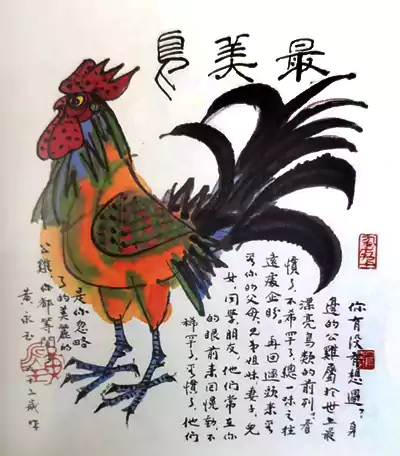 最美鳥
你有没有想過？身
邊的公雞屬於世上最
漂亮鳥類的前列。看
慣了，不希罕了，總一味之往
遠處企盼。再回過頭来看
看你的父母、兄弟姐妹、妻子、兒
女、同學朋友，他們常在你
的眼前来回慌動，不
稀罕了，看慣了，他們
是你忽略
了的美麗的
公雞，你都等閒
黄永玉